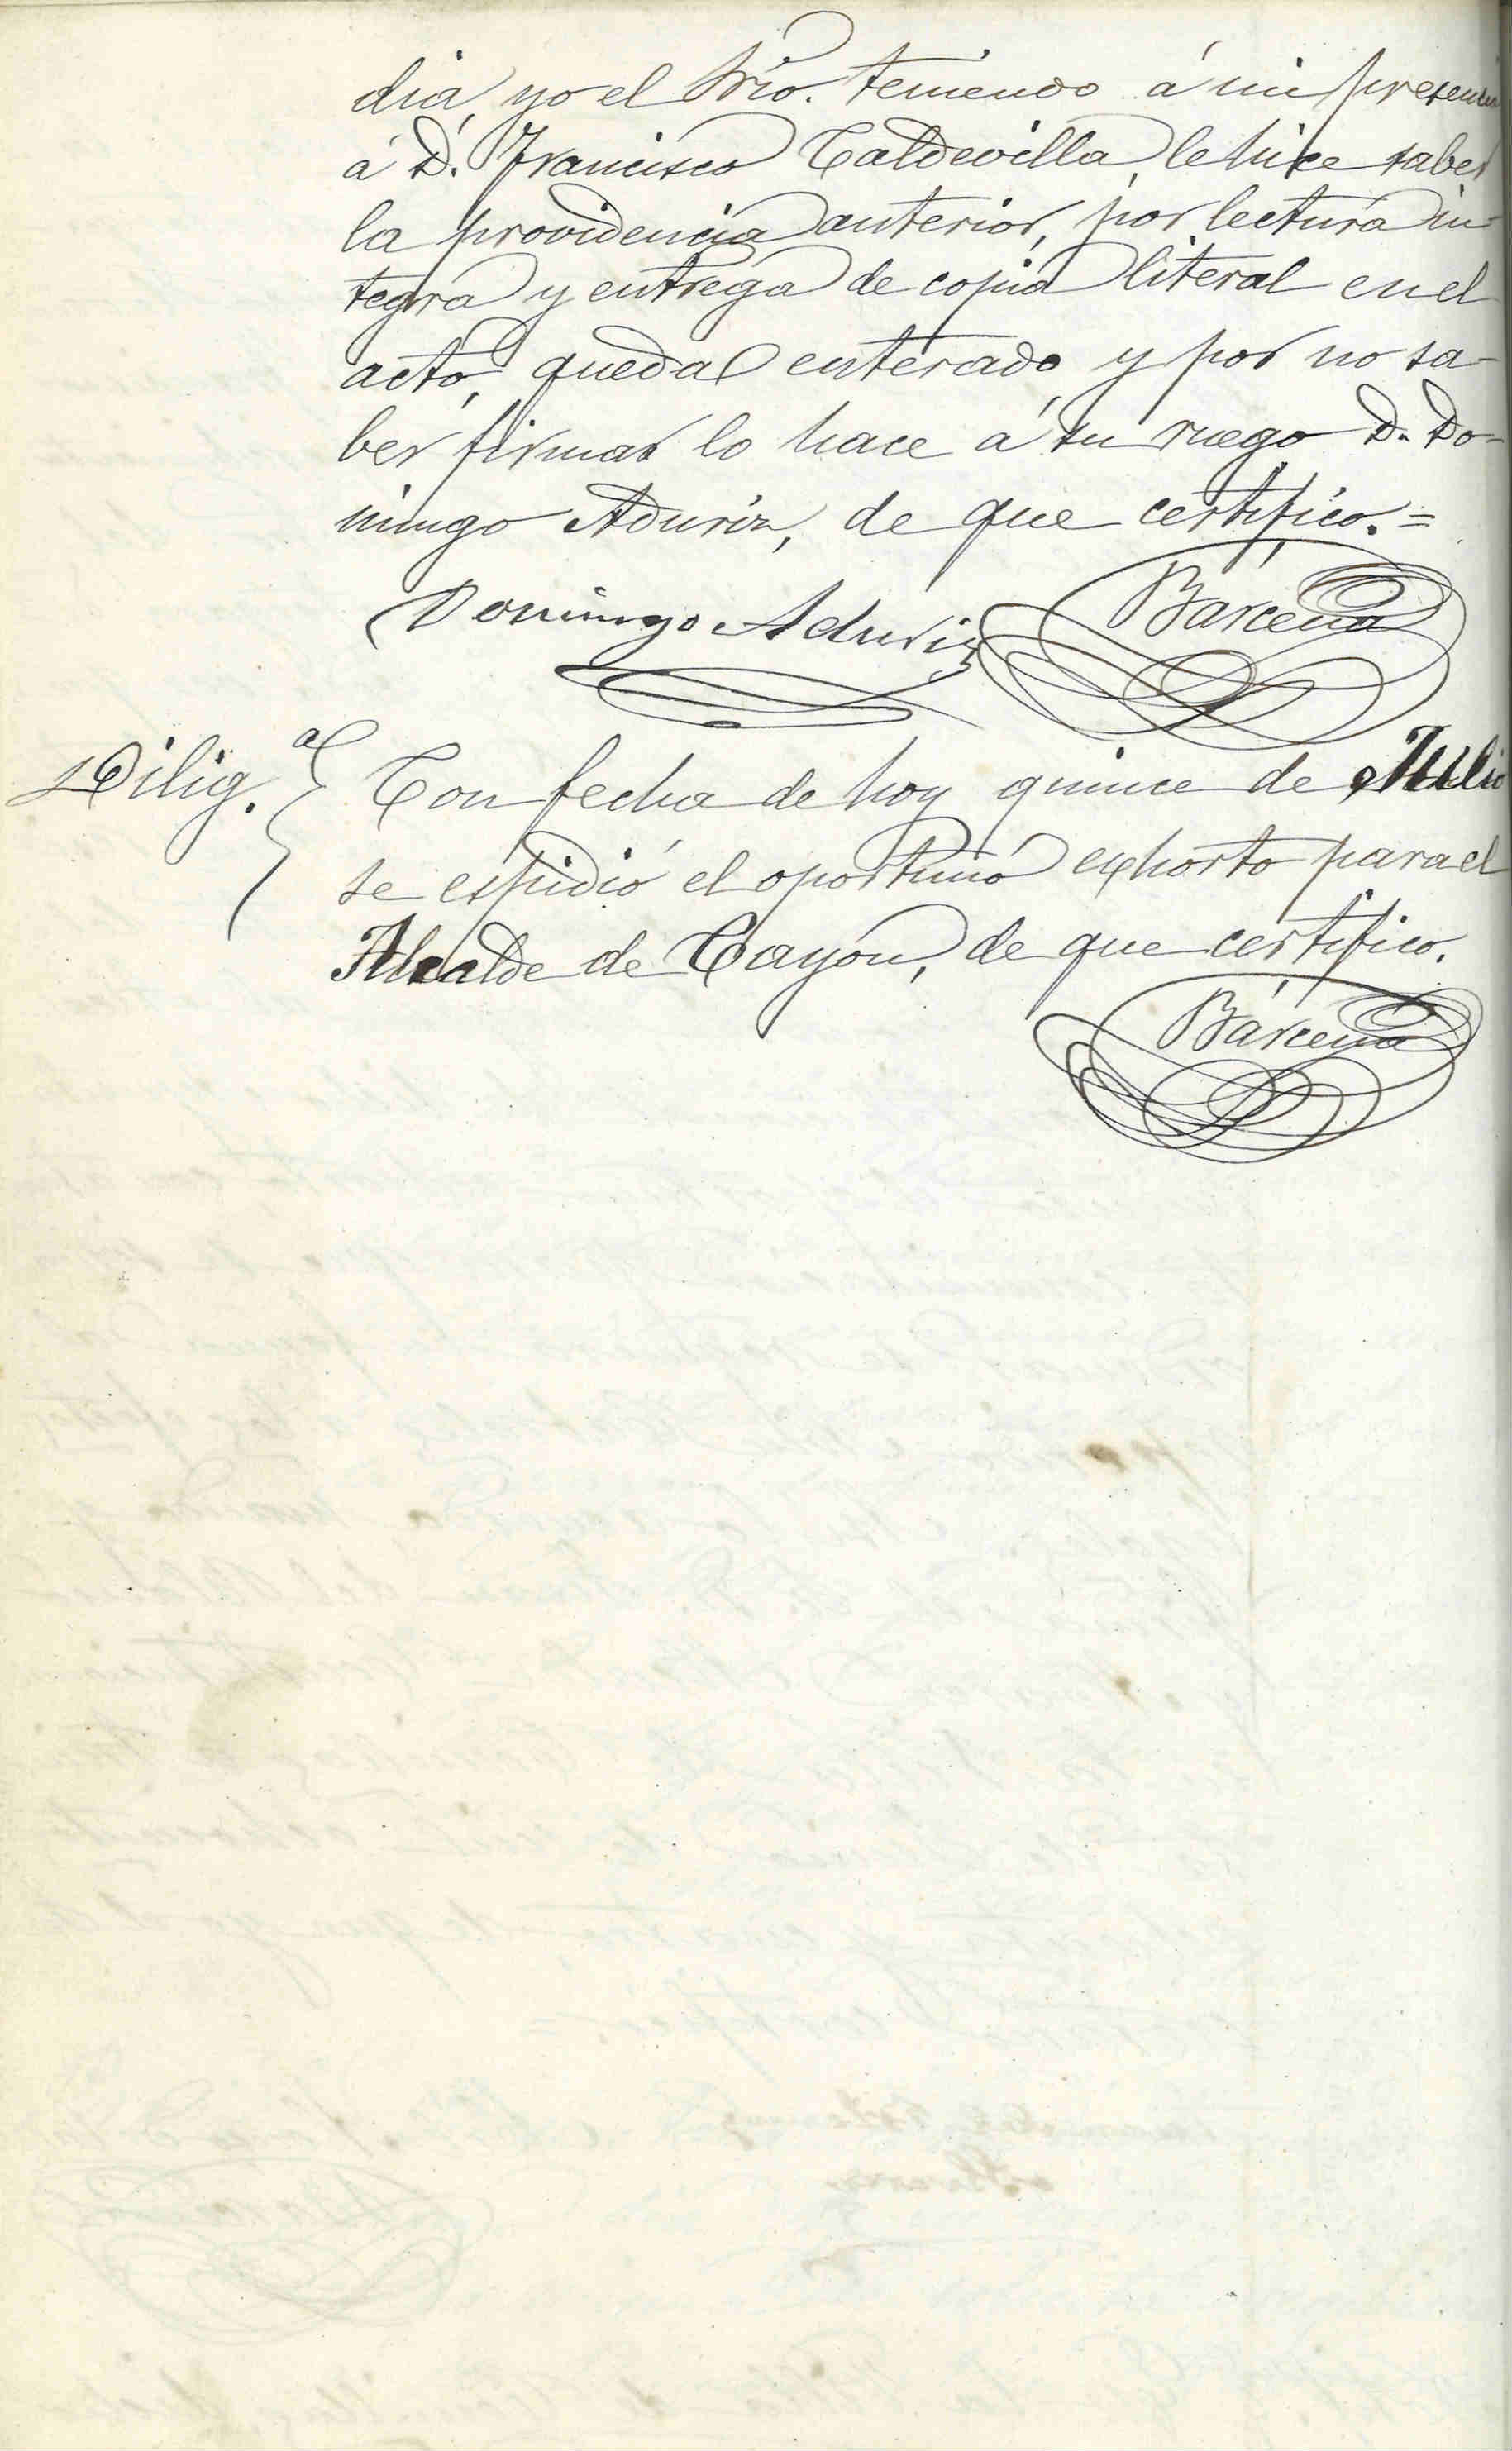 dia, yo el Srio. teniendo á mi presencia
á D. Francisco Caldevilla, le hice saber
la providencia anterior, por lectura in-
tegra y entrega de copia literal en el
acto, queda enterado, y por no sa-
ber firmar lo hace á su ruego D. Do-
mingo Aduriz, de que certifico.=
Domingo Aduriz Bárcena
Dilig.a Con fecha de hoy quince de Julio
se espidió el oportuno exhorto para el
Alcalde de Cayón, de que certifico.
Bárcena